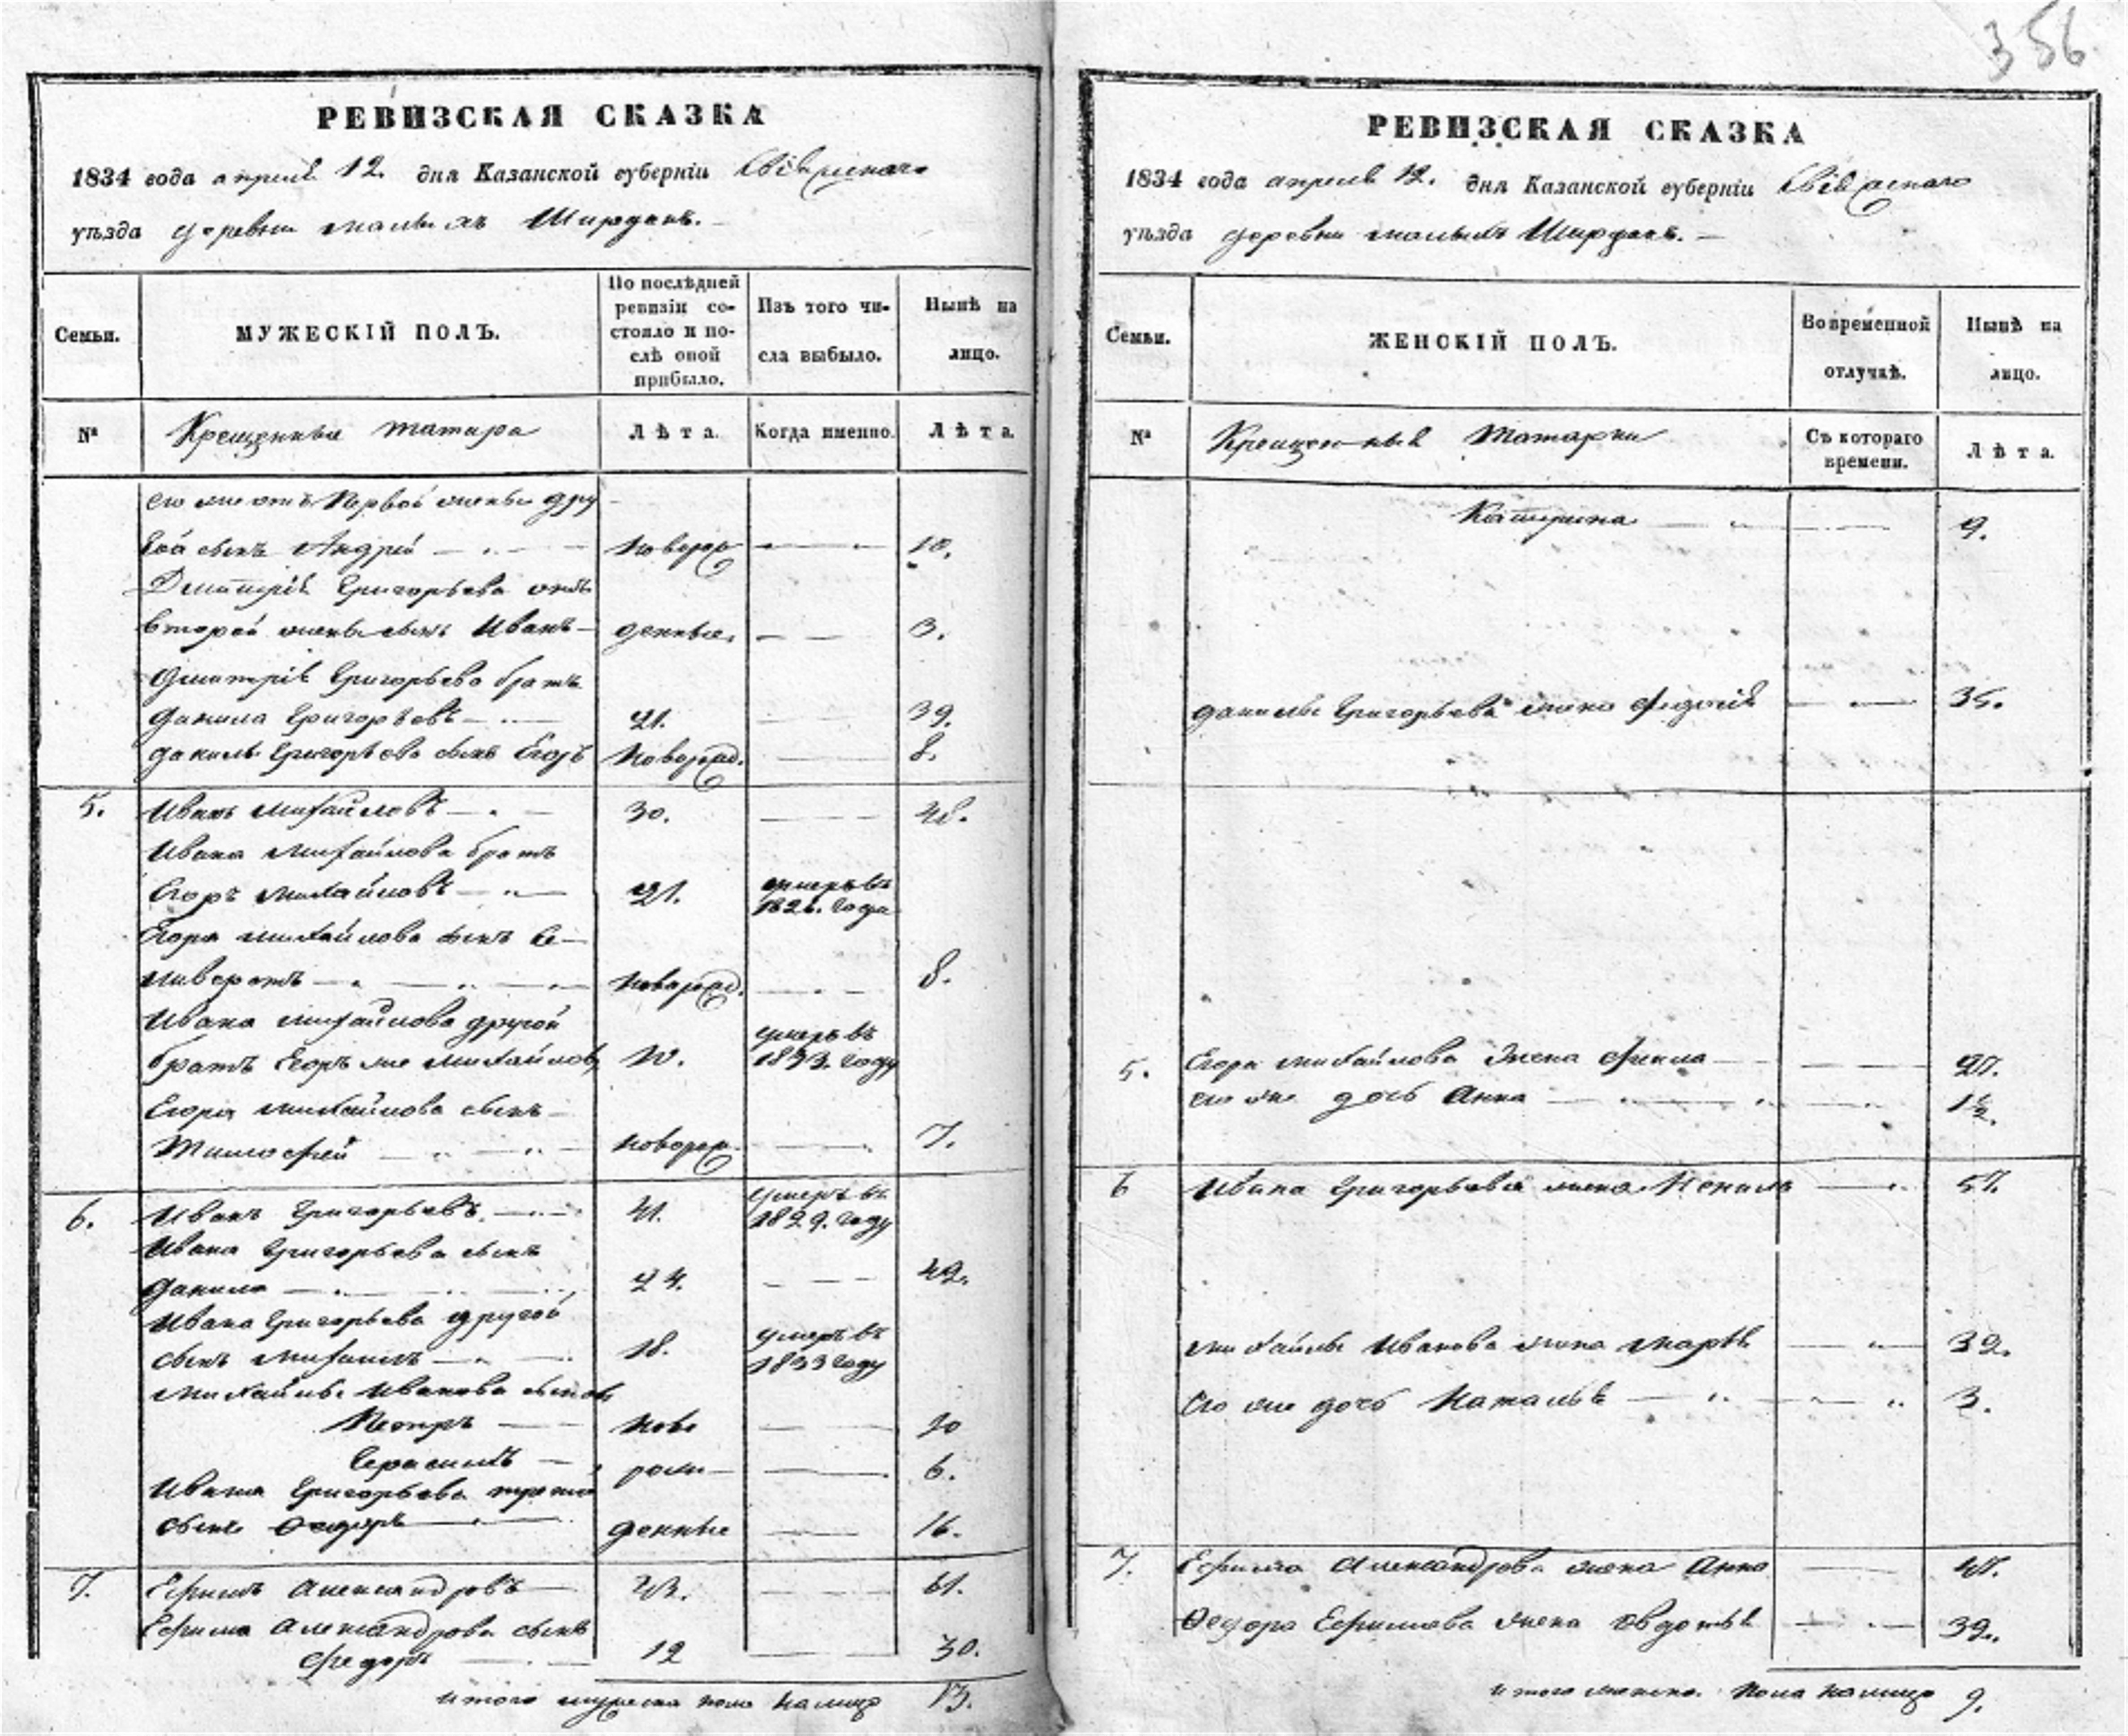 356
РЕВИЗСКАЯ СКАЗКА
1834 года апреля 12. дня Казанской губерніи Свіяжскаго
уѣзда деревни малыхъ Ширданъ.
Семьи.
МУЖЕСКІЙ ПОЛЪ.
По послѣдней ревизіи со-
стояло и по-
слѣ оной
прибыло.
Изъ того чи-
сла выбыло.
Нынѣ на
лицо.
№
Крещенные татара
Лѣта.
Когда именно.
Лѣта.
его же отъ Первой жены дру
гой сынъ Андрей новорож 10.
Дмитрія Григорьева отъ
второй жены сынъ Иванъ денные. 3.
Дмитрія Григорьева братъ
Данила Григорьевъ 21. 39.
Данилы Григорьева сынъ Егоръ новорожд. 8.
5. Иванъ Михайловъ 30. 48.
Ивана Михайлова братъ
Егоръ Михайловъ 21. умеръ въ 1826. года
Егора Михайлова сынъ Се-
ливерстъ новорожд. 8.
Ивана Михайлова другой
братъ Егоръ же Михайловъ 10. умеръ въ 1833. году
Егора Михайлова сынъ
Тимофей новорож. 7.
6. Иванъ Григорьевъ 41. умеръ въ 1829. году
Ивана Григорьева сынъ
Данило 24. 42.
Ивана Григорьева другой
сынъ Михаилъ 18. умеръ въ 1833 году
Михайлы Иванова сыновья
Петръ ново 10
Герасимъ рож 6.
Ивана Григорьева третій
сынъ Ѳедоръ денные 16.
7. Ефимъ Александровъ 43. 61.
Ефима Александрова сынъ
Федоръ 12 30.
итого мужеска пола налицо 13.
РЕВИЗСКАЯ СКАЗКА
1834 года апреля 12. дня Казанской губерніи Свіяжскаго
уѣзда деревни малыхъ Ширданъ.
Семьи.
ЖЕНСКІЙ ПОЛЪ.
Во временной
отлучкѣ.
Нынѣ на
лицо.
№
Крещенные Татарки
Съ котораго
времени.
Лѣта.
Катерина 9.
Данилы Григорьева жена Федосія 35.
5. Егора Михайлова жена Фекла 27.
его же дочь Анна 1½.
6 Ивана Григорьева жена 57.
Михайлы Иванова жена Марѳа 32.
Его же дочь Наталья 3.
7. Ефима Александрова жена Анна 47.
Ѳедора Ефимова жена Овдотья 32.
итого женска. Пола налицо 9.